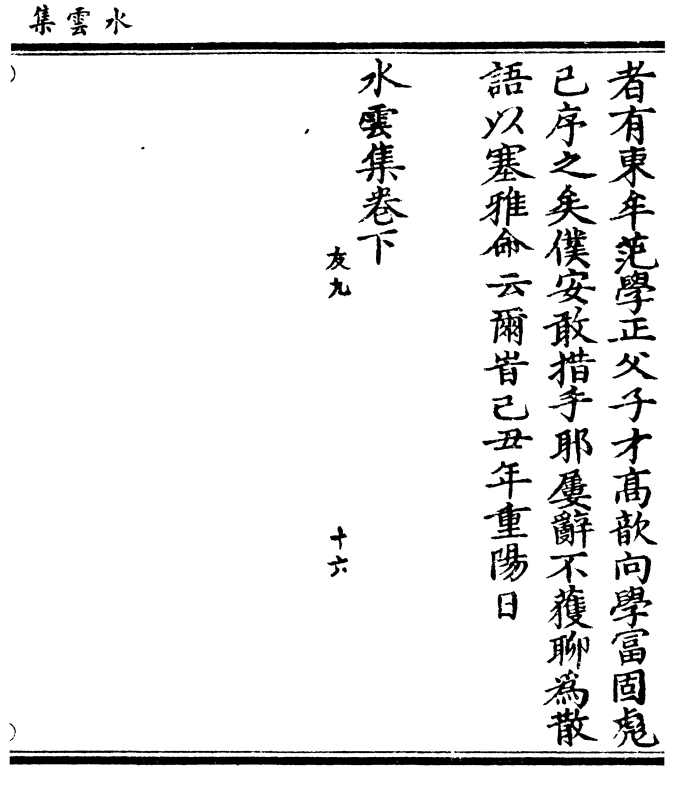 水雲集
者有東牟范學正父子才高歆向學富固彪
已序之矣僕安敢措手耶屢辭不獲聊為散
語以塞雅命云爾旹己丑年重陽日
水雲集卷下
友九
十六